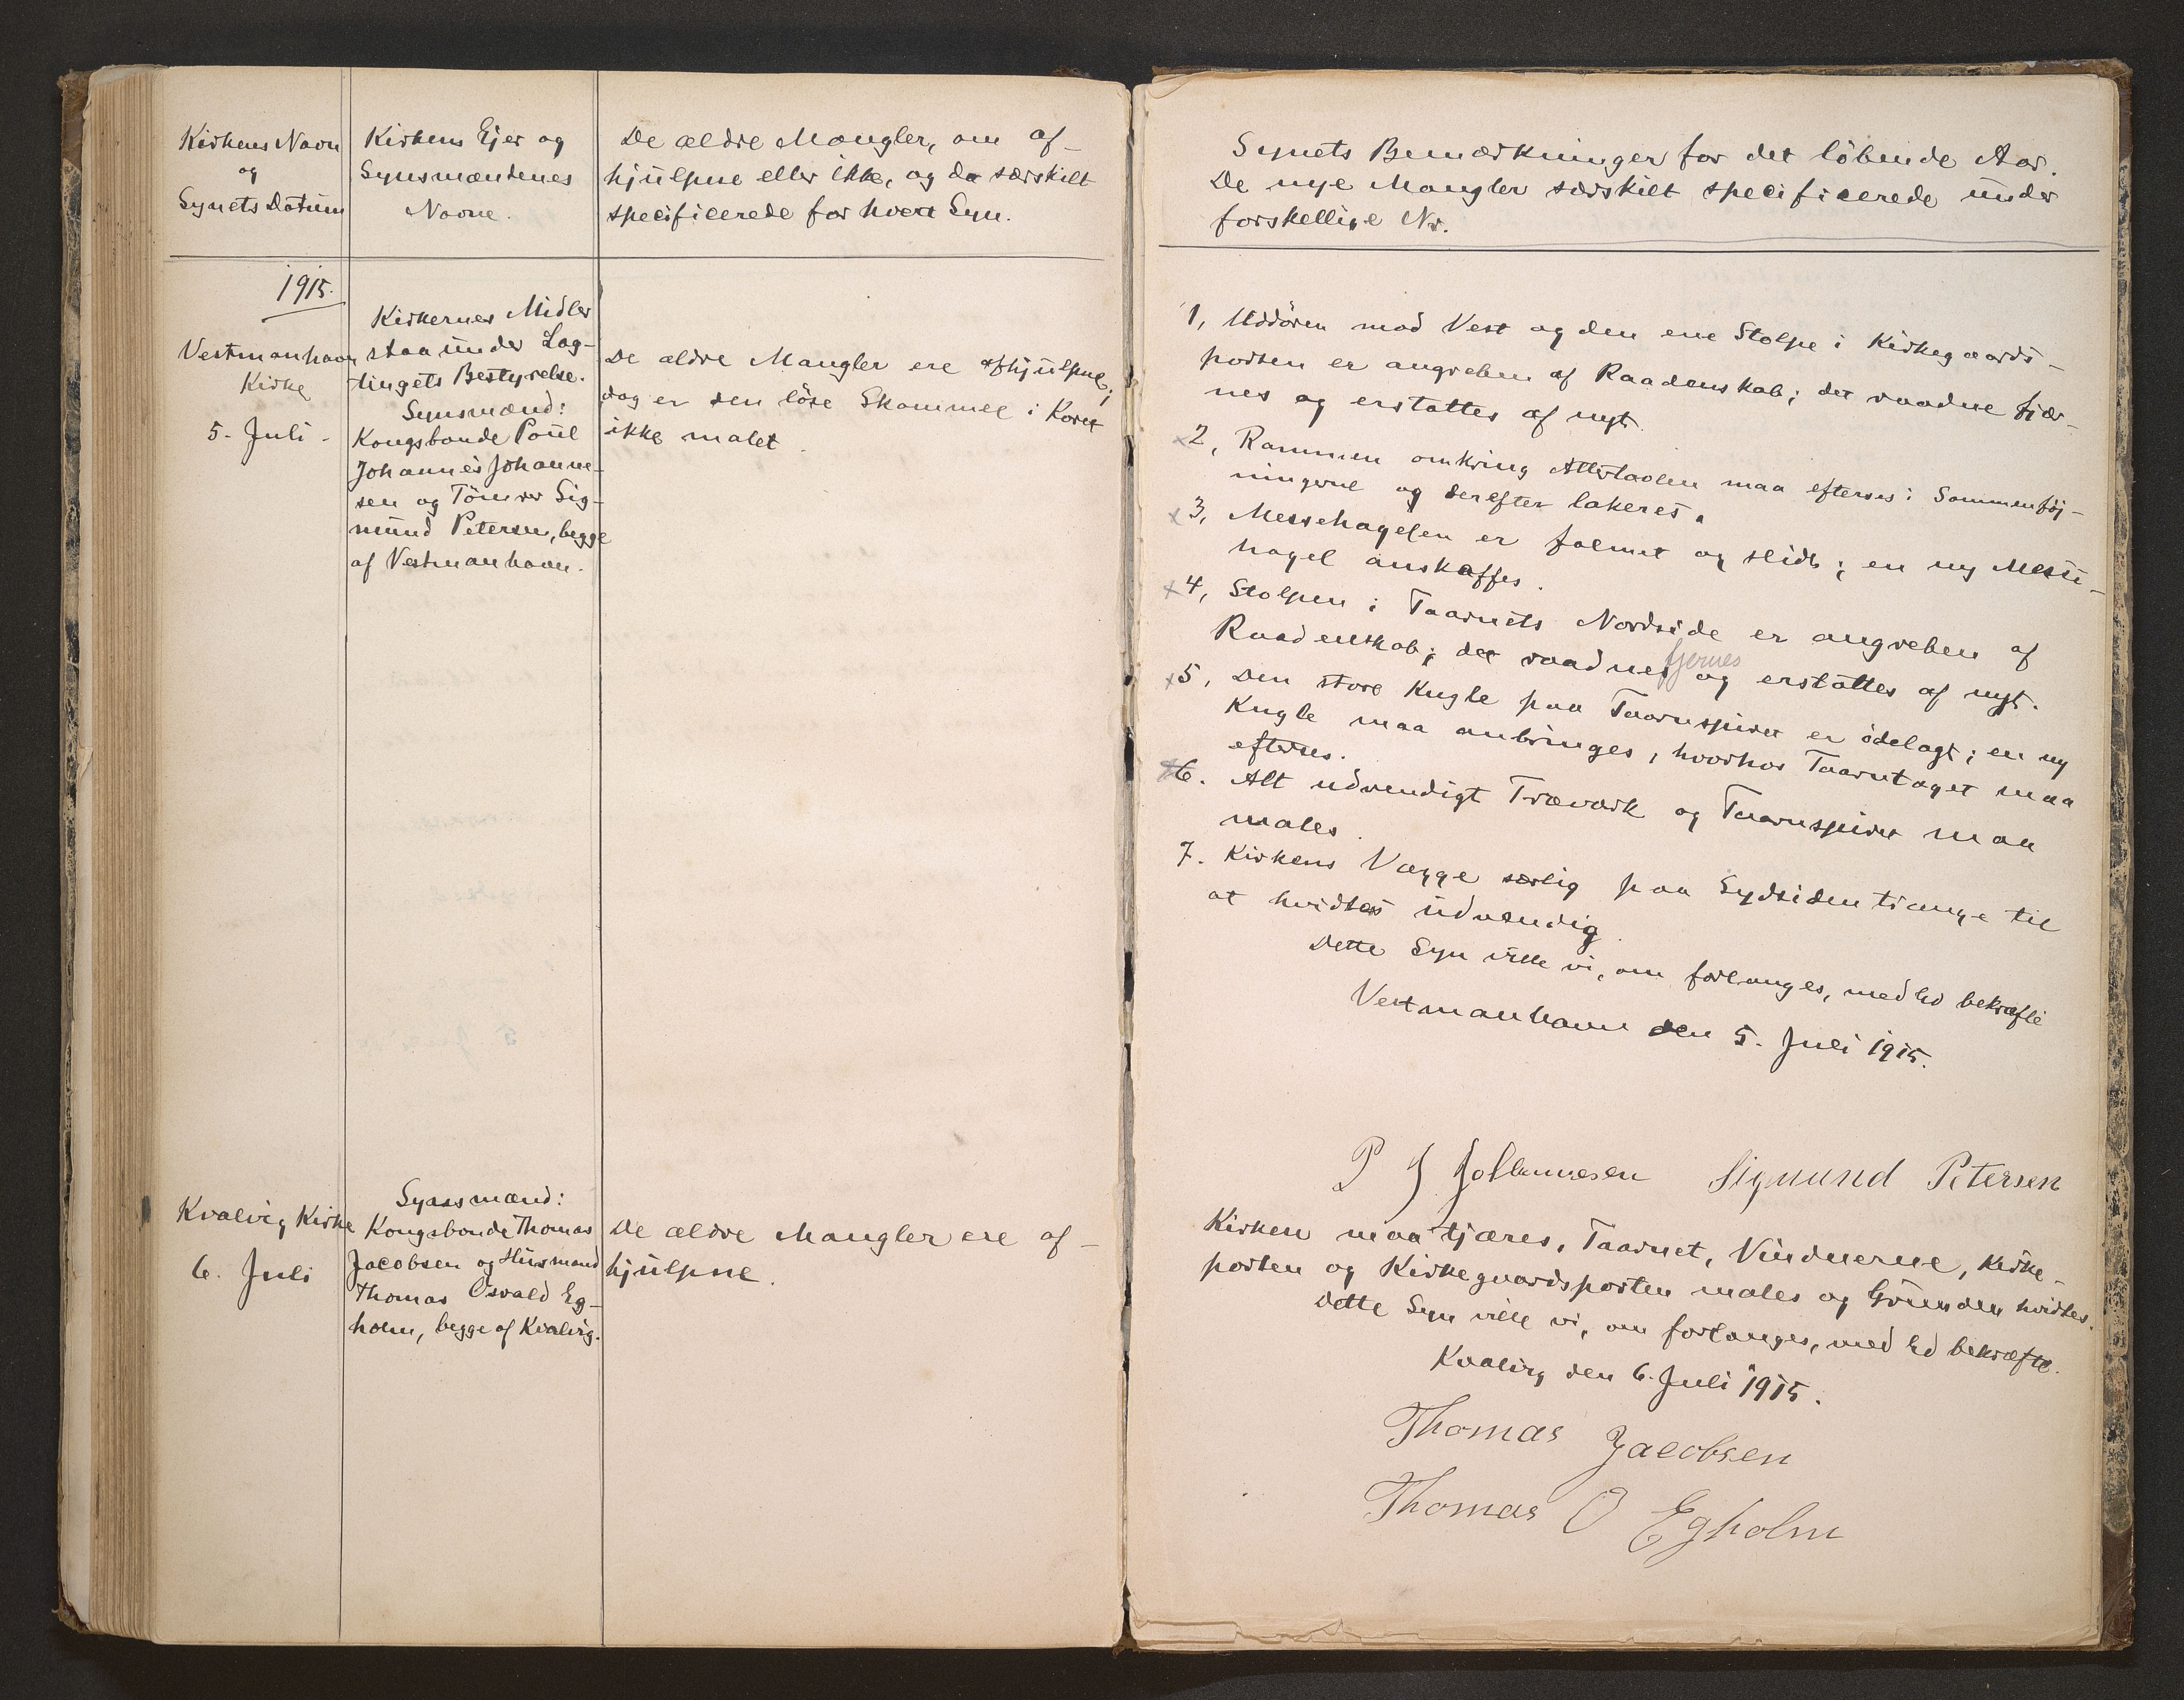 Kirkens Navn
og
Synets Datum
Kirkens Ejer og
Synsmændenes
Navne.
De ældre Mangler, om af-
hjulpne eller ikke, og da særskilt
specificerede for hvert Syn.
1915.
Vestmanhavn
Kirke
5. Juli
Kirkernes Midler
staa under Lag-
tingets Bestyrelse.
Synsmænd:
Kongsbonde Poul
Johannes Johanne-
sen og Tömrer Sig-
mund Petersen, begge
af Vestmanhavn.
De ældre Mangler ere afhjulpne;
dog er den löse Skammel i Koret
ikke malet.
Kvalvig Kirke
6. Juli
Synsmænd:
Kongsbonde Thomas
Jacobsen og Husmand
Thomas Osvald Eg-
holm, begge af Kvalvig.
De ældre Mangler ere af-
hjulpne.
Synets Bemærkninger for det löbende Aar.
De nye Mangler særskilt specificerede under
forskellige Nr.
1, Uddören mod Vest og den ene Stolpe i Kirkegaards-
porten er angreben af Raadenskab; det raadne fjær-
nes og erstattes af nyt.
x2, Rammen omkring Altertavlen maa efterses i Sammenföj-
ningerne og derefter lakeres.
x3, Messehagelen er falmet og slidt; en ny Messe-
hagel anskaffes.
x4, Stolpen i Taarnets Nordside er angreben af
Raadenskab; det raadnes fjernes og erstattes af nyt.
x5, Den store Kugle paa Taarnspiret er ödelagt; en ny
Kugle maa anbringes, hvorhos Taarntaget maa
efterses.
x6. Alt udvendigt Træværk og Taarnspiret maa
males.
7. Kirkens Vægge særlig paa Sydsiden trænge til
at hvidtes udvendig.
Dette Syn ville vi, om forlanges, med Ed bekræfte
Vestmanhavn den 5. Juli 1915.
P J Johannesen Sigmund Petersen
Kirken maa tjæres, Taarnet, Vinduerne, Kirke-
porten og Kirkegaardsporten males og Grunden hvidtes.
Dette Syn ville vi, om forlanges, med Ed bekræfte.
Kvalvig den 6. Juli 1915.
Thomas Jacobsen
Thomas O Egholm